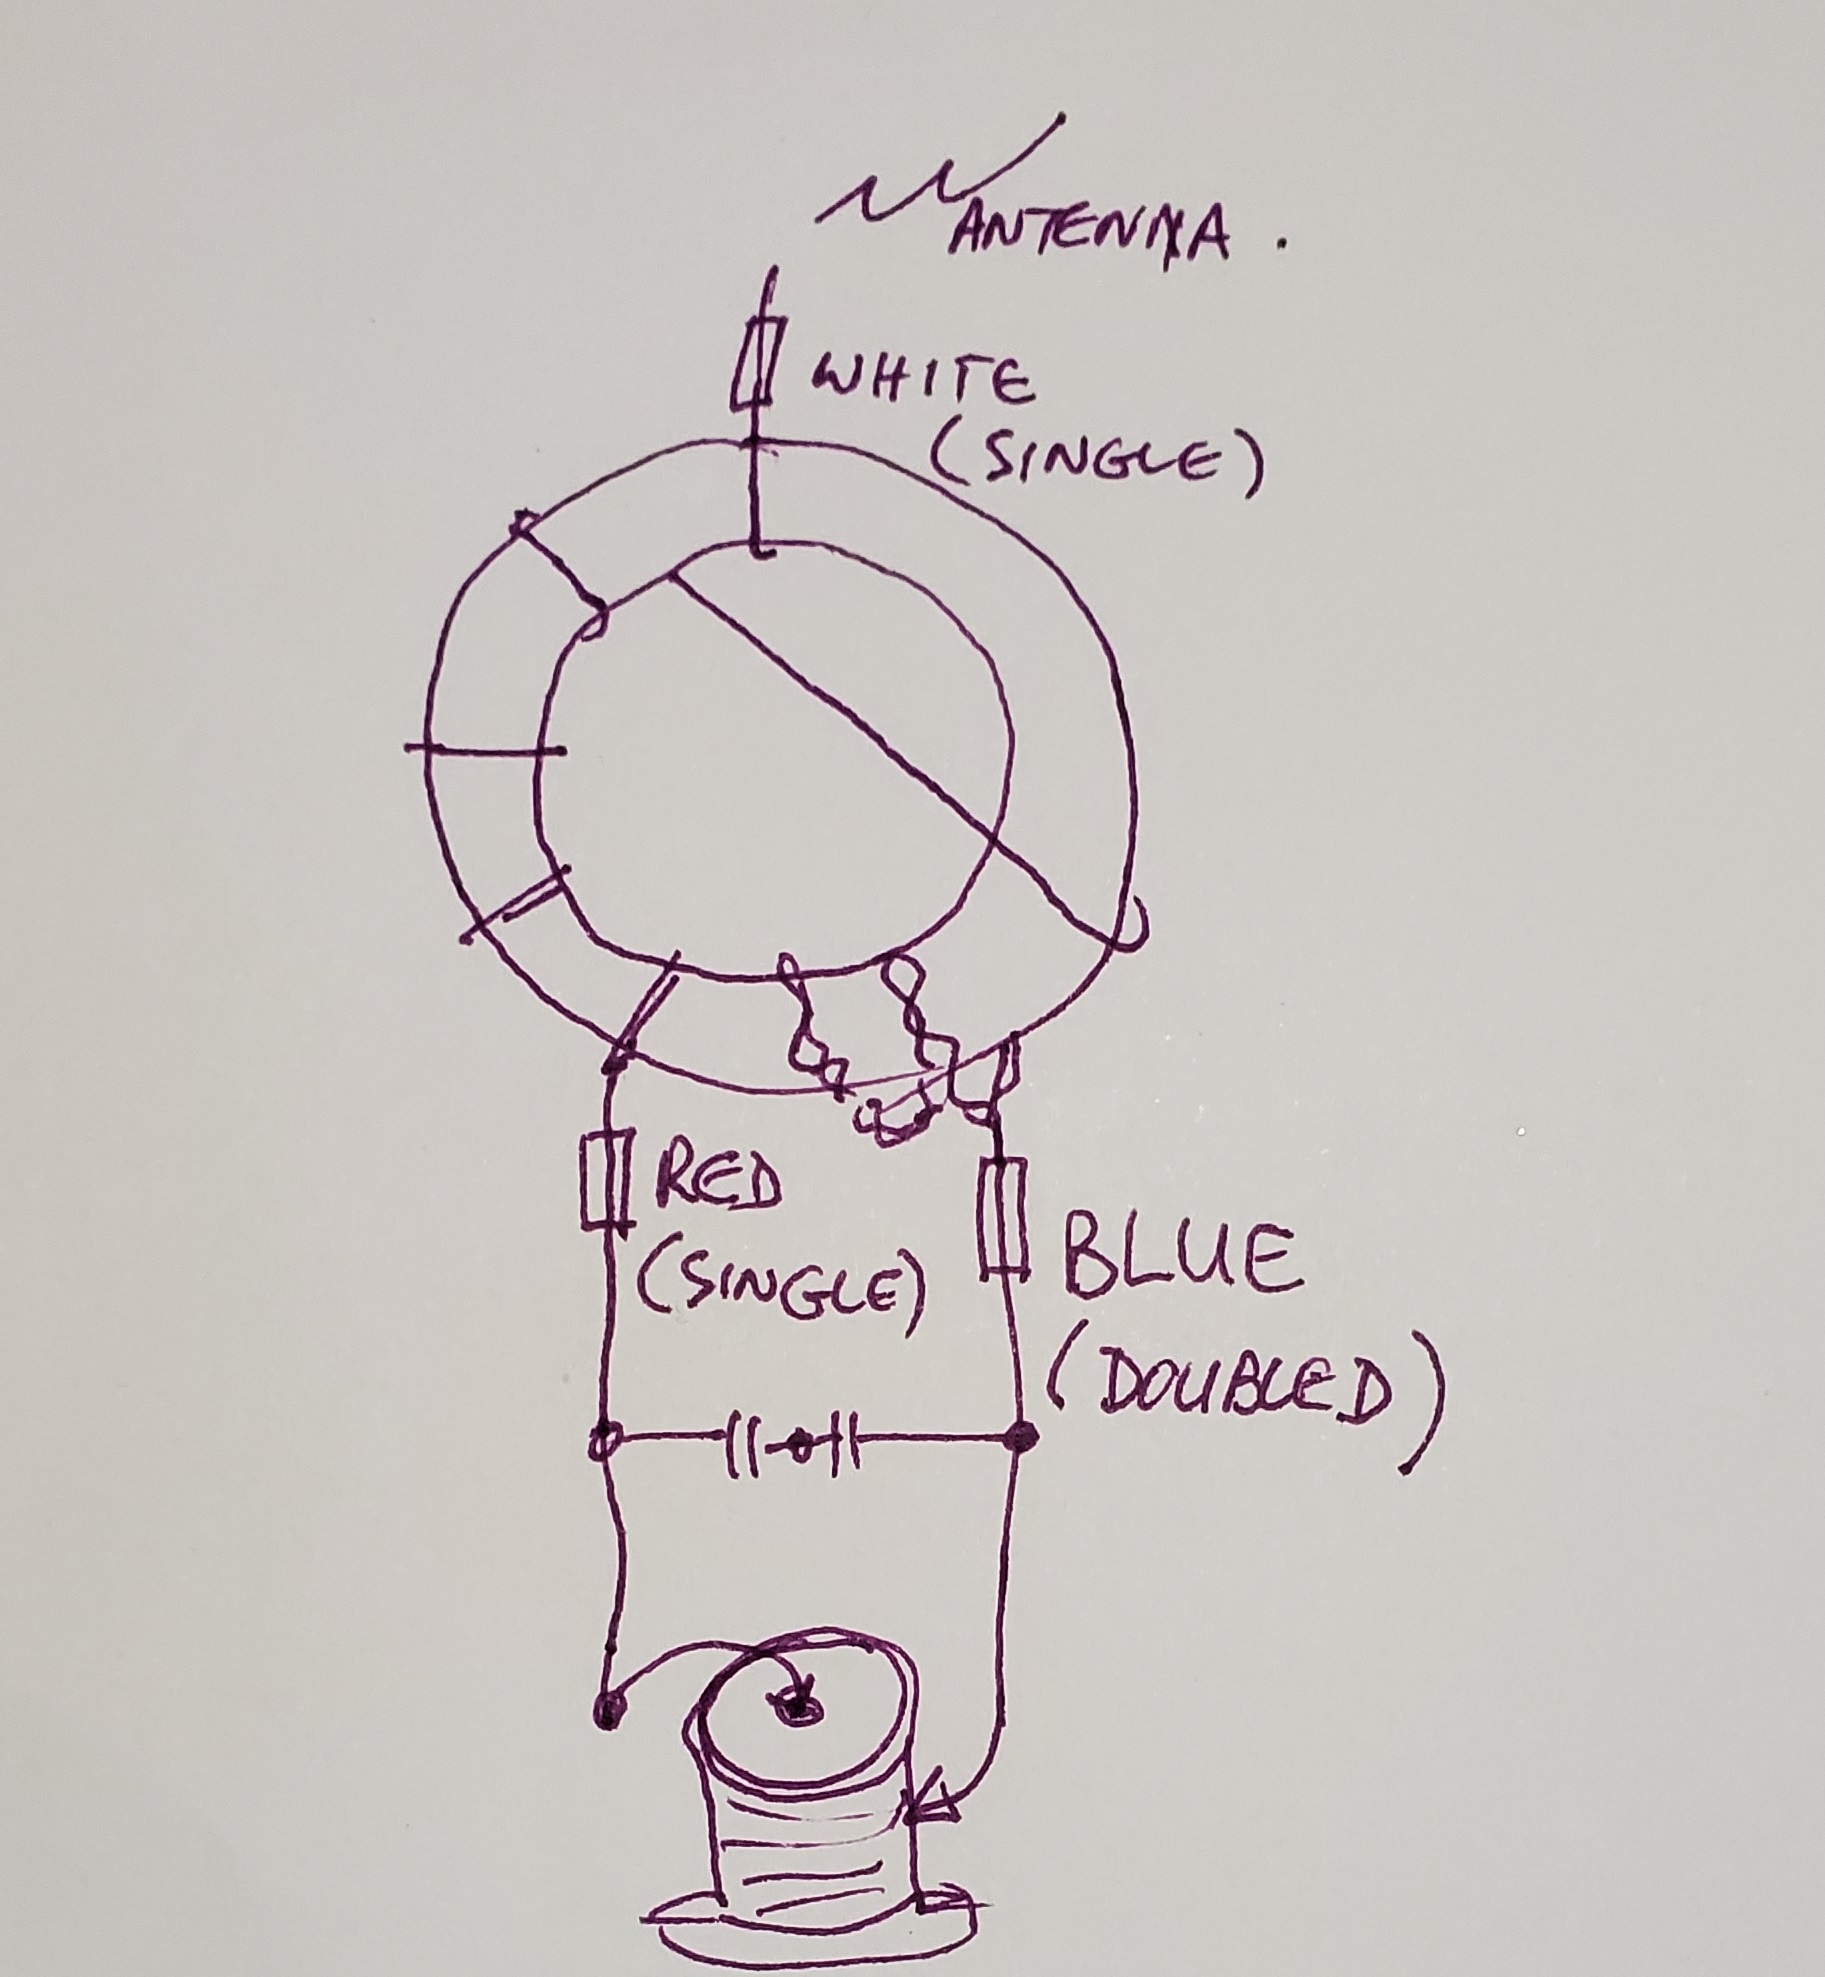 ANTENNA.
WHITE
(SINGLE)
RED
(SINGLE)
BLUE
(DOUBLED)